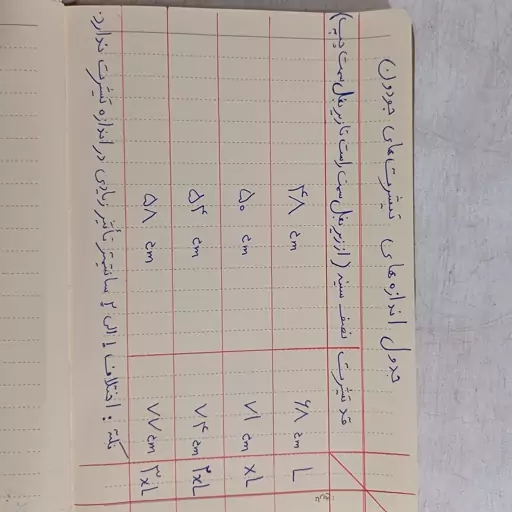 جدول اندازه های تیشرت های جودون
قد تیشرت | نصف سینه (از زیر بغل سمت راست تا زیر بغل سمت چپ)
L | ۶۸ cm | ۴۸ cm
XL | ۷۱ cm | ۵۰ cm
۲XL | ۷۴ cm | ۵۴ cm
۳XL | ۷۷ cm | ۵۸ cm
نکته: اختلاف ۱ الی ۲ سانتیمتر تأثیر زیادی در اندازه تیشرت ندارد.